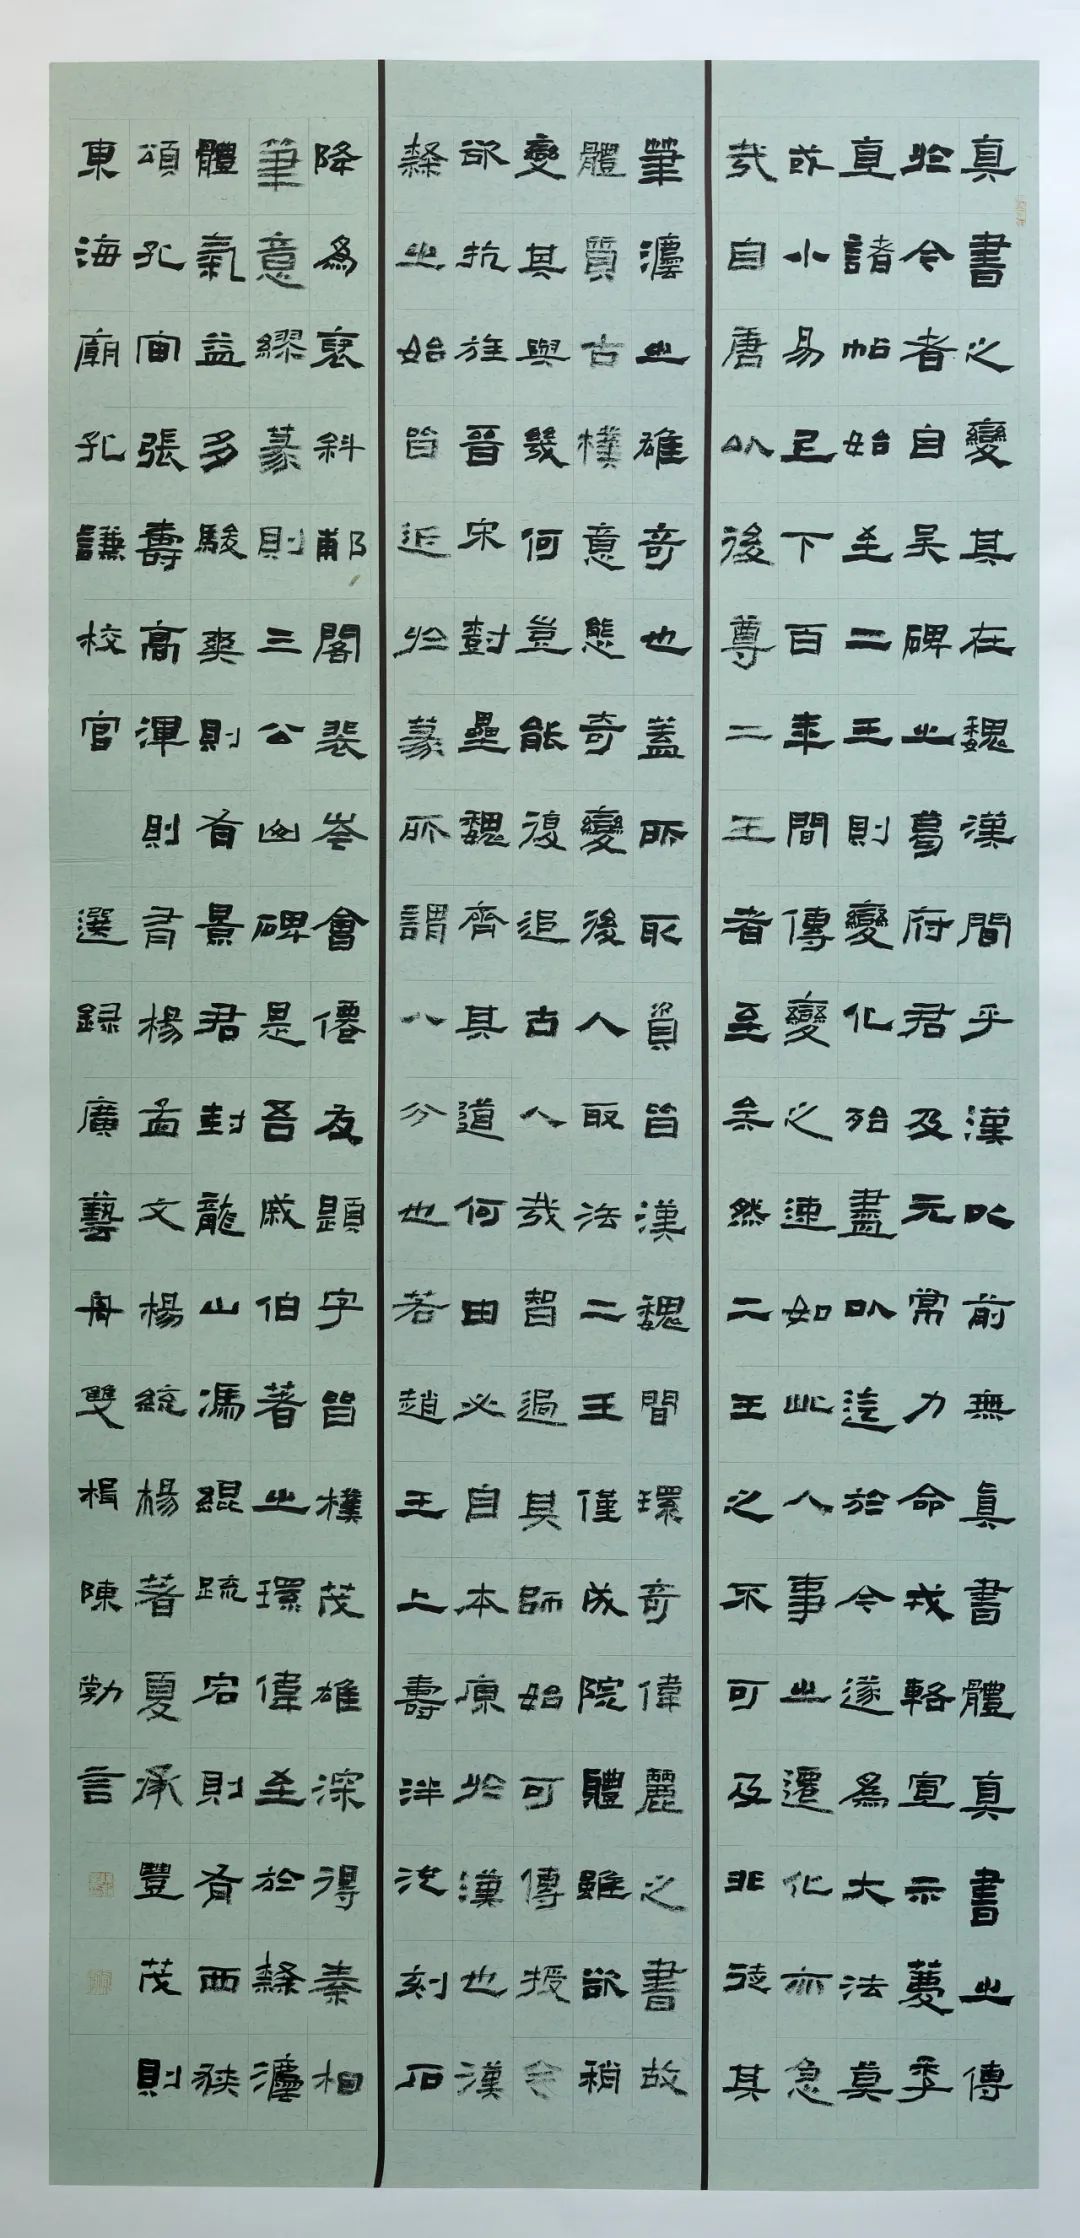 真書之變其在魏漢間乎漢以前無真書體真書之傳
於今者自吳碑之葛府君及元常力命戎輅宣示薦季
直諸帖始至二王則變化殆盡以迄於今遂為大法莫
或小易已下百年間傳變之速如此人事之遷化亦急
哉自唐以後尊二王者至矣然二王之不可及非徒其
筆灋之雄奇也蓋所取資皆漢魏間瓌奇偉麗之書故
體質古樸意態奇變後人取法二王僅成院體雖欲稍
變其與幾何豈能復追古人哉智過其師始可傳授今
欲抗旌晉宋對壘魏齊其道何由必自本原於漢也漢
隸之始皆近於篆所謂八分也若趙王上壽泮池刻石
降為褒斜郙閣裴岑會僊友題字皆樸茂雄深得秦相
筆意繆篆則三公山碑是吾戚伯著之瓌偉至於隸灋
體氣益多駿爽則有景君封龍山馮緄疏宕則有西狹
頌孔宙張壽高渾則有楊孟文楊統楊著夏承豐茂則
東海廟孔謙校官 選錄廣藝舟雙楫陳勃言